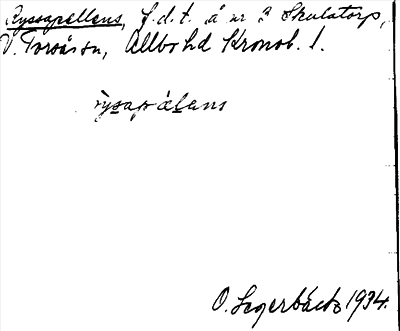 Ryssapellens, f.d.t. å nr 3 Skulatorp,
V. Torsåsm, Allbo hd Kronob. l.
rysapèlens
O. Segerbäck 1934.